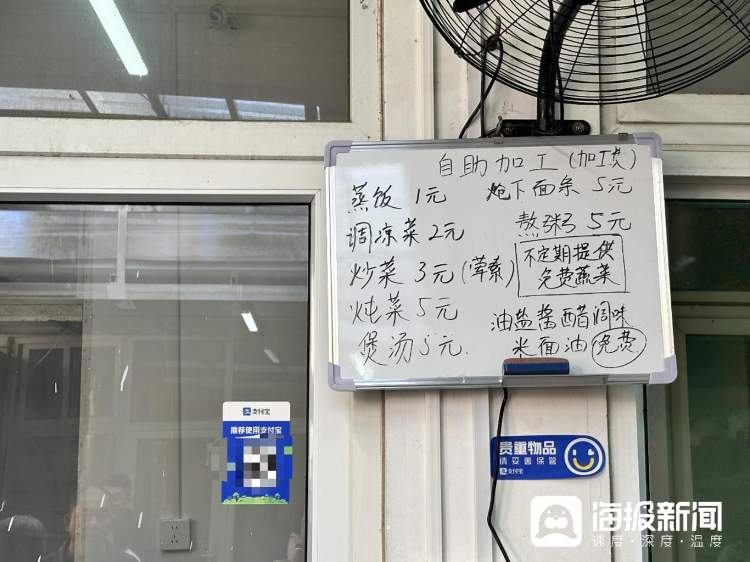 自助加工(加工费)
蒸饭 1元
调凉菜 2元
炒菜 3元(荤素)
炖菜 5元
煲汤 5元
炝下面条 5元
熬粥 5元
不定期提供
免费蔬菜
油盐酱醋调味
米面油 免费
支付宝
推荐使用支付宝
贵重物品
请妥善保管
支付宝
海报新闻
速度·深度·温度